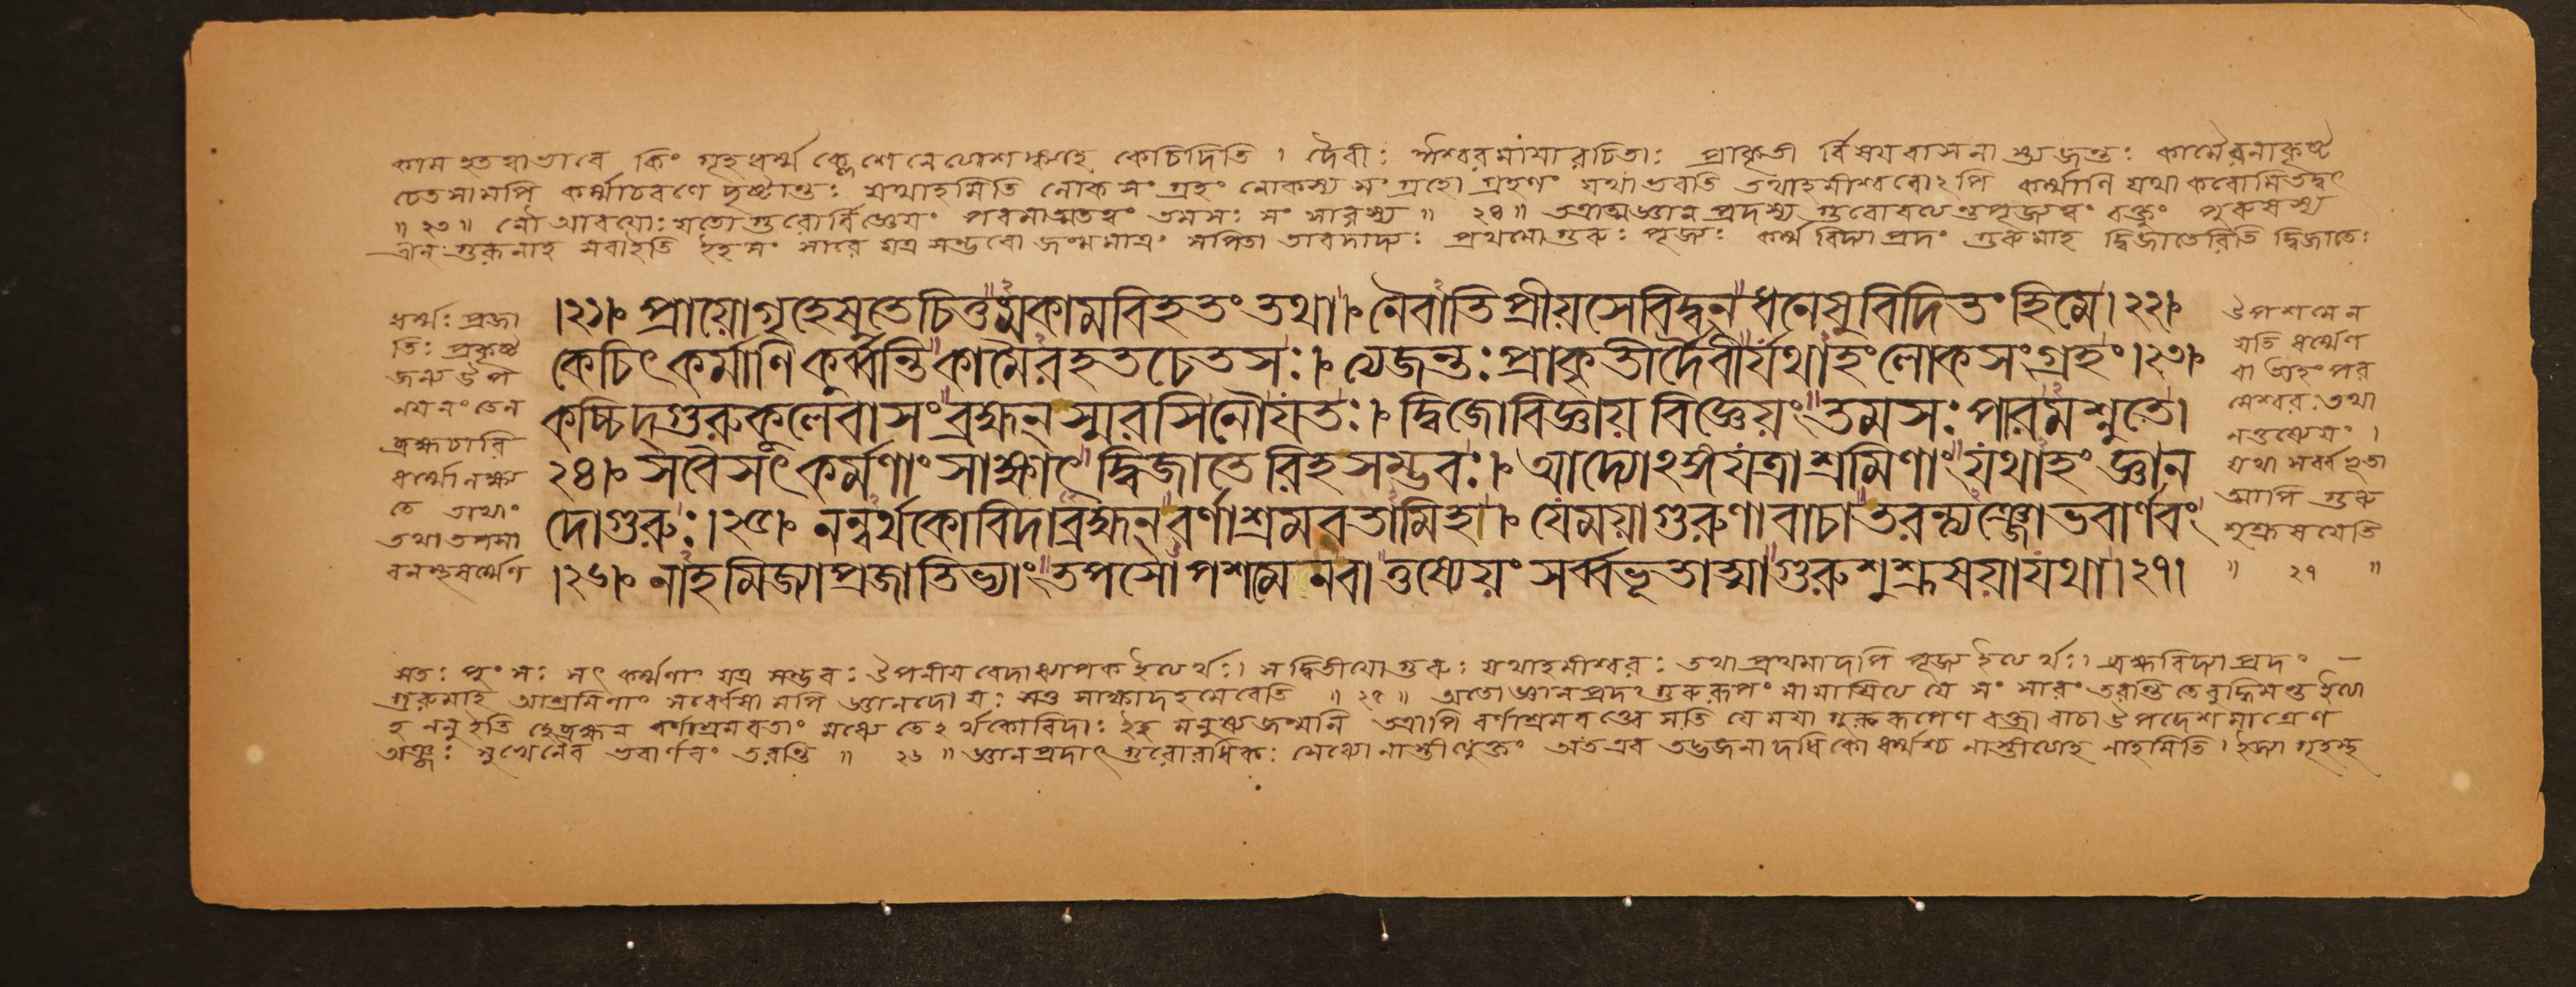 কাম হতত্বাভাবে কিং গৃহধর্ম্ম ক্লেশেনেত্যাশঙ্ক্যাহে কেচিদিতি । দৈবীঃ ঈশ্বরমায়ারচিতাঃ প্রাকৃতী র্বিষয়বাসনা স্ত্যজন্তঃ কামৈরনাকৃষ্ট
চেতসামপি কর্ম্মাচরণে দৃষ্টান্তঃ যথাহমিতি লোক সং গ্রহং লোকস্য সং গ্রহো গ্রহণং যথা ভবতি তথাহমীশ্বরোঽপি কর্ম্মাণি যথা করোমি তদ্বৎ
॥ ২৩ ॥ নৌ আবয়োঃ যতো গুরোর্বিজ্ঞেয়ং পরমাত্মতত্ত্বং তমসঃ সং সারস্য ॥ ২৪ ॥ তত্রাত্মজ্ঞান প্রদস্য গুরোরত্যন্তপূজ্যত্বং বক্তুং পুরুষস্য
ত্রীন্ গুরূনাহ সবাইতি ইহ সং সারে যত্র সম্ভবো জন্মমাত্রং সপিতা তাবদাদ্যঃ প্রথমো গুরুঃ পূজ্যঃ কর্ম্ম বিদ্যা প্রদং গুরুমাহ দ্বিজাতেরিতি দ্বিজাতেঃ
।২১।০ প্রায়োগৃহেষুতেচিত্তমকামবিহতং তথা।০ নৈবাতিপ্রীয়সেবিদ্বন্ ধনেষুবিদিতং হিমে।২২।০
কেচিৎকর্মাণিকুর্ব্বন্তিকামৈরহতচেতসঃ।০ ত্যেজন্তঃপ্রাকৃতীর্দৈবীর্যথাহংলোকসংগ্রহং।২৩।০
কচ্চিদ্গুরুকুলেবাসংব্রহ্মন্স্মরসিনৌযতঃ।০ দ্বিজোবিজ্ঞায় বিজ্ঞেয়ং তমসঃপারমশ্নুতে।
২৪।০ সবৈসৎকর্মণাং সাক্ষাৎ দ্বিজাতেরিহসম্ভবঃ।০ আদ্যোঽঙ্গযত্রাশ্রমিণাং যথাহং জ্ঞান
দোগুরুঃ।২৫।০ নন্বর্থকোবিদাব্রহ্মন্বর্ণাশ্রমবতামিহ।০ যেময়াগুরুণাবাচাতরন্ত্যঞ্জোভবার্ণবং
।২৬।০ নাহমিজ্যাপ্রজাতিভ্যাং তপসোপশমেনবা তুষ্যেয়ং সর্ব্বভূতাত্মাগুরুশুশ্রূষয়াযথা।২৭।
ধর্ম্মঃ প্রজা
তিঃ প্রকৃষ্ট
জন্ম উপ
নয়নং তেন
ব্রহ্মচারি
ধর্ম্মো লক্ষ্য
তে তাভ্যাং
তথা তপসা
বনস্থধর্ম্মেণ
উপশমেন
যতি ধর্ম্মেণ
বা অহং পর
মেশ্বরঃ তথা
নতুষ্যেয়ং ।
যথা সর্ব্বভূতা
আপি গুরু
শুশ্রূষয়েতি
॥ ২৭ ॥
সতঃ পুং সঃ সৎ কর্ম্মণাং যত্র সম্ভবঃ উপনীয় বেদাধ্যাপক ইত্যর্থঃ। স দ্বিতীয়ো গুরুঃ যথাহমীশ্বরঃ তথা প্রথমাদপি পূজ্য ইত্যর্থঃ। ব্রহ্মবিদ্যা প্রদং —
গুরুমাহ আশ্রমিণাং সর্বেষামপি জ্ঞানদো যঃ সতু সাক্ষাদহমেবেতি ॥ ২৫ ॥ অতো জ্ঞানপ্রদং গুরুরূপং মামাশ্রিত্য যে সং সারং তরন্তি তে বুদ্ধিমন্ত ইত্যা
হ ননু ইতি হে ব্রহ্মন্ বর্ণাশ্রমবতাং মধ্যে তেঽর্থকোবিদাঃ ইহ মনুষ্য জন্মনি তত্রাপি বর্ণাশ্রমবত্ত্বে সতি যে ময়া গুরুরূপেণ বক্ত্রা বাচা উপদেশমাত্রেণ
অঞ্জঃ সুখেনৈব ভবার্ণবং তরন্তি ॥ ২৬ ॥ জ্ঞানপ্রদাৎ গুরোরধিকঃ সেব্যো নাস্তীত্যুক্তং অতএব তদ্ভজনাদধিকো ধর্ম্মশ্চ নাস্তীত্যাহ নাহমিতি। ইজ্যা গৃহস্থ